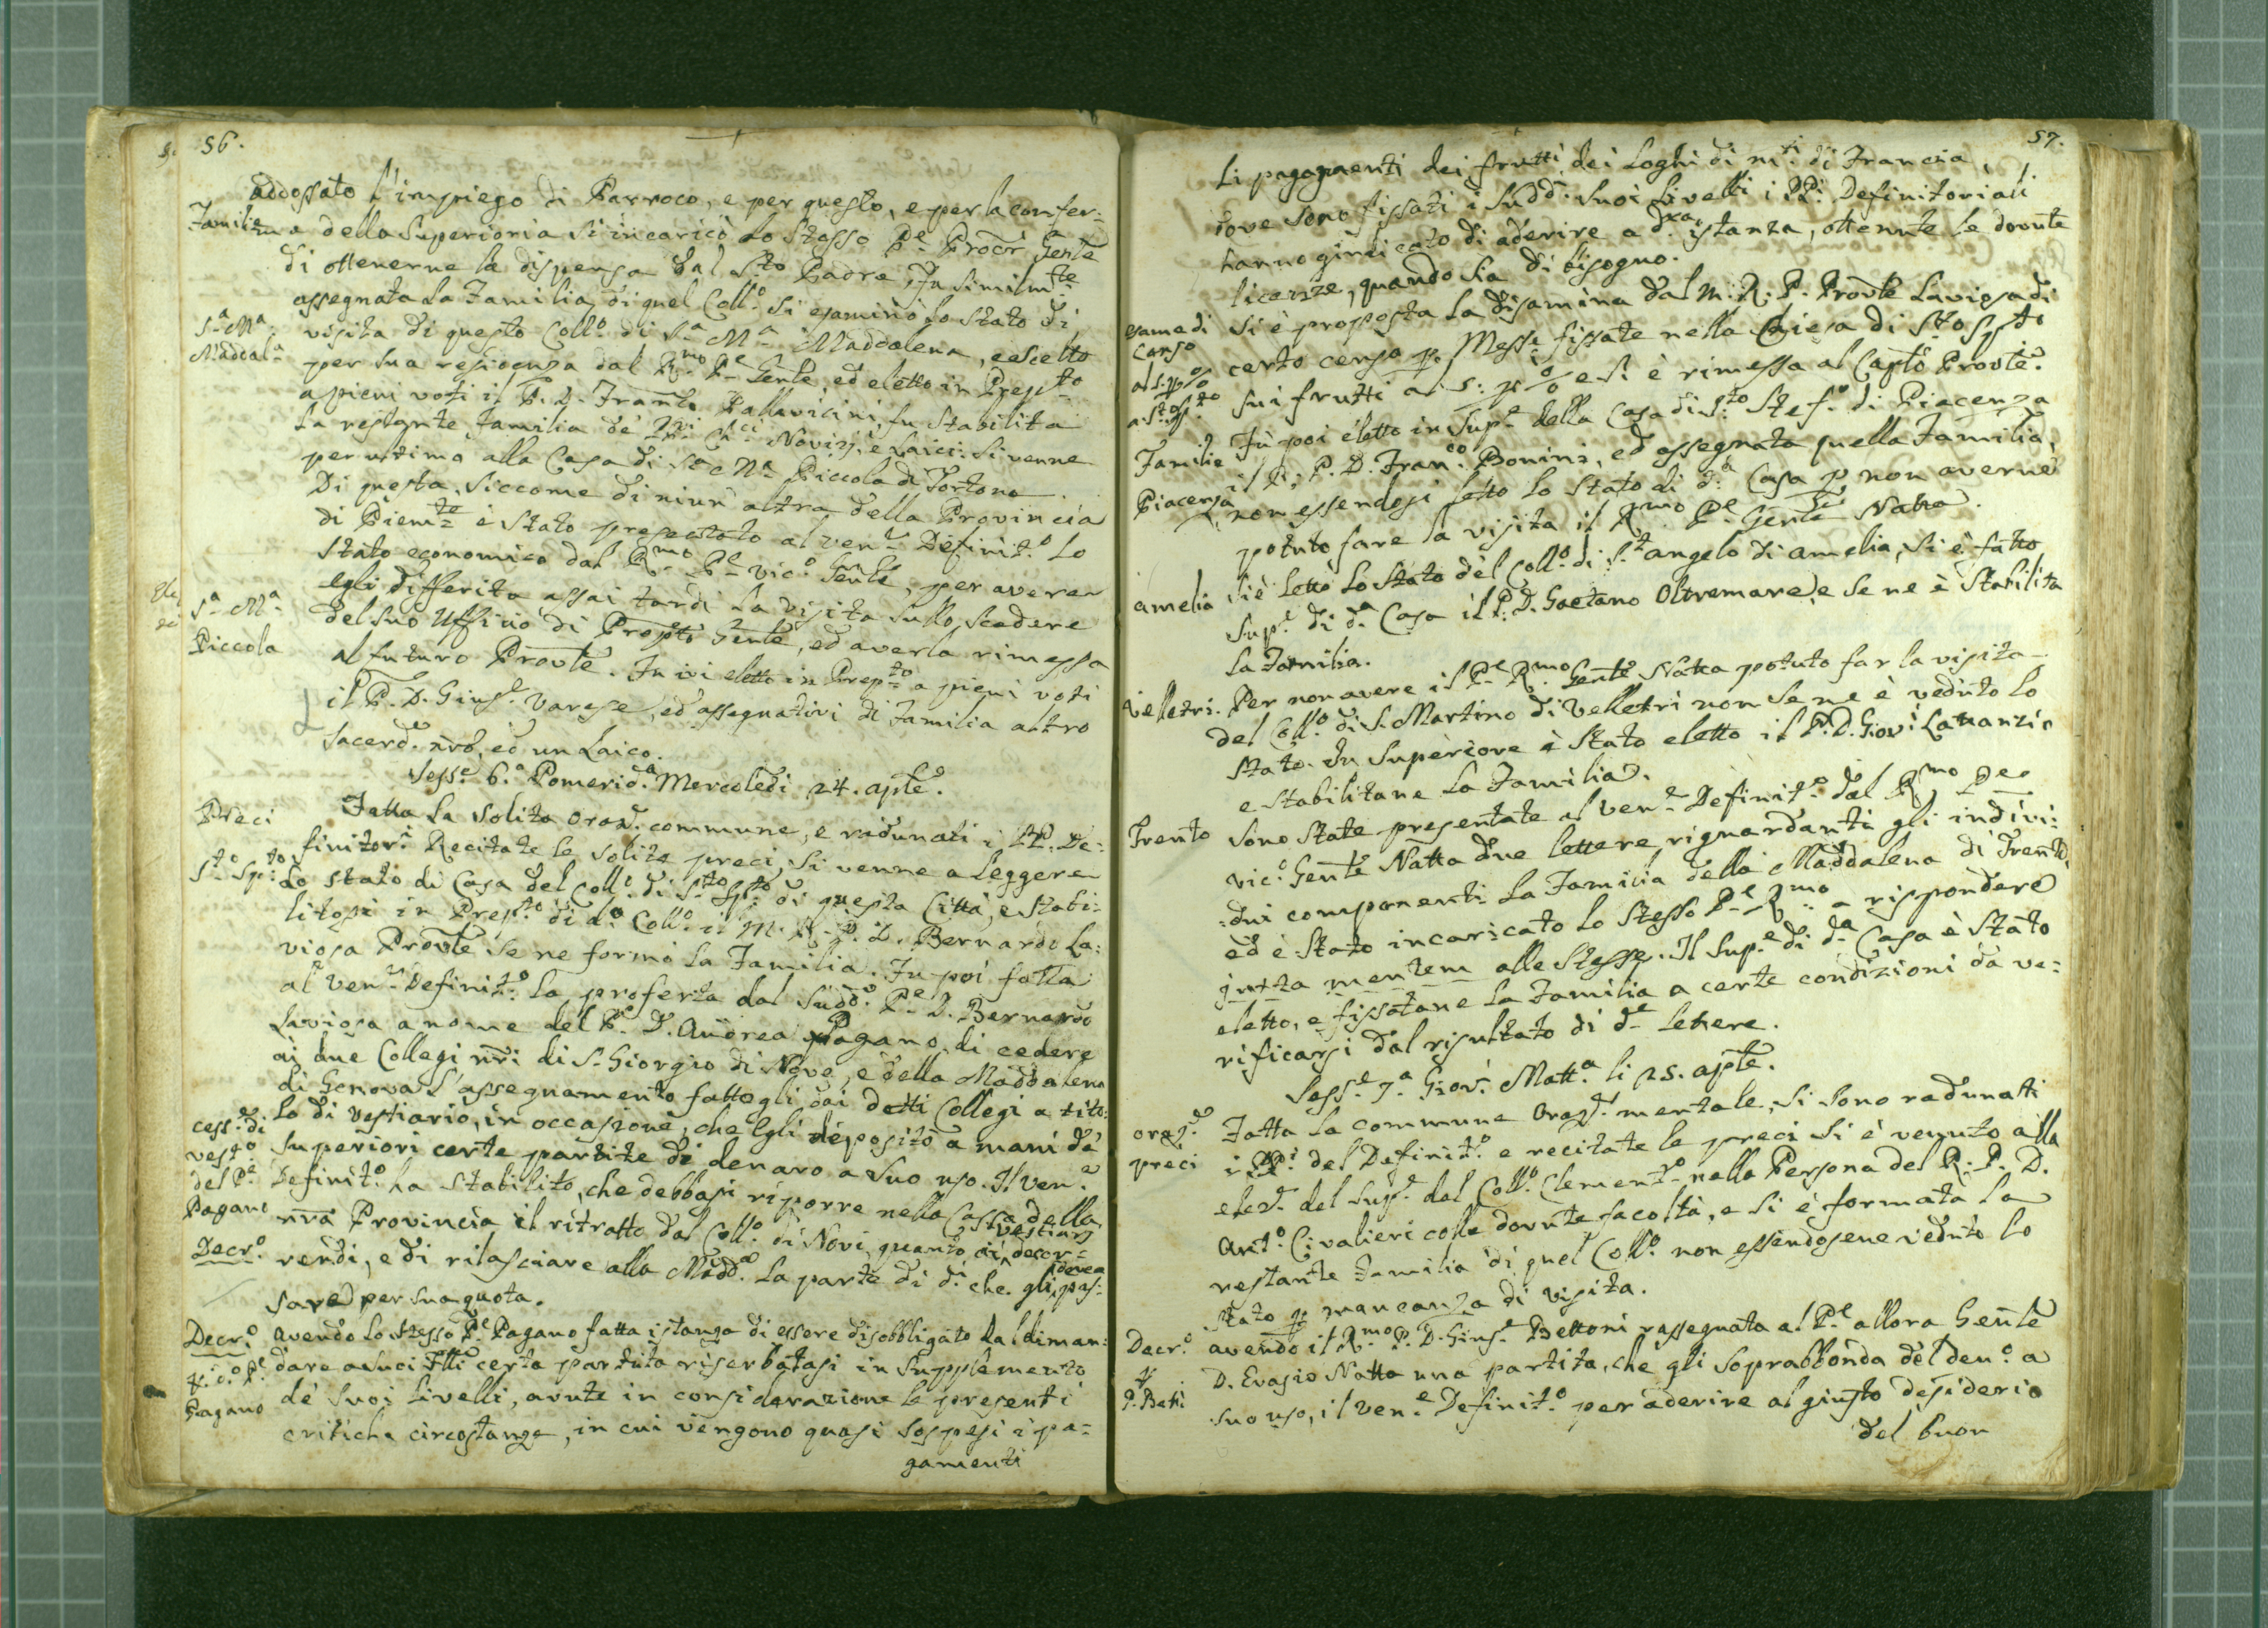 56.
addossato l'impiego di Parroco, e per questo, e per la confer-
Familia
ma della Superioria si incaricò lo stesso Pe. Procr. Gente
di ottenerne la dispensa dal Sto. Padre, Fu similmte.
assegnata la Familia di quel Collo. Si esaminò lo stato di
Sa. Ma.
Maddala.
visita di questo Collo. di Sa. Ma. Maddalena, e scelto
per sua residenza dal Rmo. Pe. Gente, ed eletto in Prepto.
a pieni voti il P. D. Franco. Pallavicini, fu stabilita
la restante Familia de' PPri. Chci. Novizj, e Laici: Si venne
per ultimo alla Casa di Sa. Ma. Piccola di Tortona.
Di questa, siccome di niun' altra della Provincia
di Piemte. è stato presentato al Vene. Definito. lo
stato economico dal Rmo. Pe. Vico. Gente, per avere
Sa. Ma.
Piccola
egli differita assai tardi la visita sullo scadere
del suo Uffizio di Propto. Gente, ed averla rimessa
al futuro Provle. Fu ivi eletto in Prepto. a pieni voti
il P. D. Giuse. Varese, ed assegnativi di Familia altro
Sacerd. nro, ed un Laico.
Sesse. 6.a Pomerid.a Mercoledi 24. aple.
Preci
Fatta la solita Oraze. commune, e radunati i PP. De-
finitori Recitate le solite preci, si venne a leggere
Sto. Spto.
lo stato di Casa del Collo. di Sto. Spto. di questa Città, e stabi-
litosi in Prepto. di do. Collo. il M. R. P. D. Bernardo La-
viosa Provle. se ne formò la Familia. Fu poi fatta
al Vene. Definito. la proferta dal Suddo. Pe. D. Bernardo
Laviosa a nome del P. D. Andrea Pagano, di cedere
ai due Collegi nri di S. Giorgio di Nove, e della Maddalena
di Genova l'assegnamento fattogli dai detti Collegi a tito-
cesse. di
vesto.
del Pe.
Pagano
lo di Vestiario, in occasione, che Egli depositò a mani de'
Superiori certe partite di denaro a suo uso. Il Vene.
Definito. ha stabilito, che debbasi riporre nella Cassa della
nra Provincia il ritratto dal Collo. di Novi quanto ai Vestiarj decor-
Decro.
rendi, e di rilasciare alla Madda. la parte di di. che gli dovea pas-
sare per sua quota.
Decro.
p. i. o. Pe.
Pagano
Avendo lo stesso Pe. Pagano fatta istanza di essere disobbligato dal diman-
dare a suoi Flli certa partita riserbatasi in supplemento
de' suoi Livelli, avute in considerazione le presenti
critiche circostanze, in cui vengono quasi sospesi i pa-
gamenti
57.
li pagamenti dei frutti dei Loghi di mti. di Francia,
dove sono fissati i suddi. suoi Livelli i PPi. Definitoriali
hanno giudicato di aderire a dta. istanza, ottenute le dovute
licenze, quando sia di bisogno.
esame di
Censo
al 5. p %
a Sto. Spto.
Si è proposta la disamina dal M. R. P. Provle Laviosa di
certo censo p. Messe fissate nella Chiesa di Sto Spto
sui frutti al 5: p % e si è rimessa al Capto. Provle.
Familie
Piacenza
Fu poi eletto in Supe. della Casa di Sto. Stefo. di Piacenza
il R. P. D. Franco. Bonini, ed assegnata quella Familia,
non essendosi letto lo Stato di da. Casa p non averne
potuto fare la visita il Rmo. Pe. Gente Natta.
Amelia
Si è letto lo stato del Collo. di St. Angelo di Amelia, si è fatto
Supe. di da. Casa il P. D. Gaetano Oltremare, e se ne è stabilita
la Familia.
Velletri.
Per non avere il Pe. Rmo Gente Natta potuto far la visita
del Collo. di S. Martino di Velletri non se ne è veduto lo
stato. In Superiore è stato eletto il P. D. Giovi. Lavanzio
e stabilitane la Familia.
Trento
Sono state presentate al Vene. Definito. dal Rmo Pe.
Vico. Gente Natta due lettere riguardanti gli indivi-
dui componenti la Familia della Maddalena di Trento,
ed è stato incaricato lo stesso Pe. Rmo. a rispondere
juxta mentem alle stesse. Il Supe. di da. Casa è stato
eletto, e fissatane la Familia a certe condizioni da ve-
rificarsi dal risultato di de. lettere.
Sesse. 7.a Giovi. Matta. li 25. aple.
oraze.
preci
Fatta la commune Oraze. mentale, si sono radunati
i PPi. del Definito. e recitate le preci si è venuto alla
elez. del Supe. del Collo. Clemento. nella Persona del R. P. D.
Anto. Civalieri colle dovute facoltà, e si è formata la
restante Familia di quel Collo. non essendosene veduto lo
stato p mancanza di visita.
Decro.
p.
P. Betti
Avendo il Rmo. P. D. Giuse. Bettoni rassegnata al Pe. allora Gente
D. Evasio Natta una partita, che gli soprabbonda del deno. a
suo uso, il Vene. Definito. per aderire al giusto desiderio
del buon